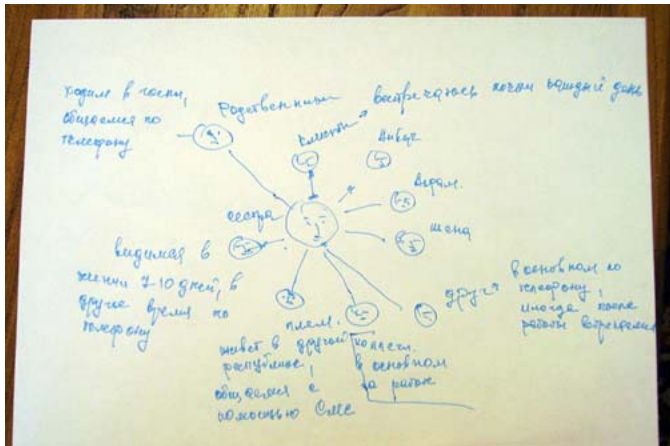 ходим в гости,
общаемся по
телефону
Родственники
клиенты
встречаюсь почти каждый день
сестра
видимся в
течении 7-10 дней, в
другое время по
телефону
жена
друг
в основном по
телефону,
иногда после
работы встречаемся
плем.
живет в другой
республике,
общаемся с
помощью СМС
коллеги.
в основном
на работе